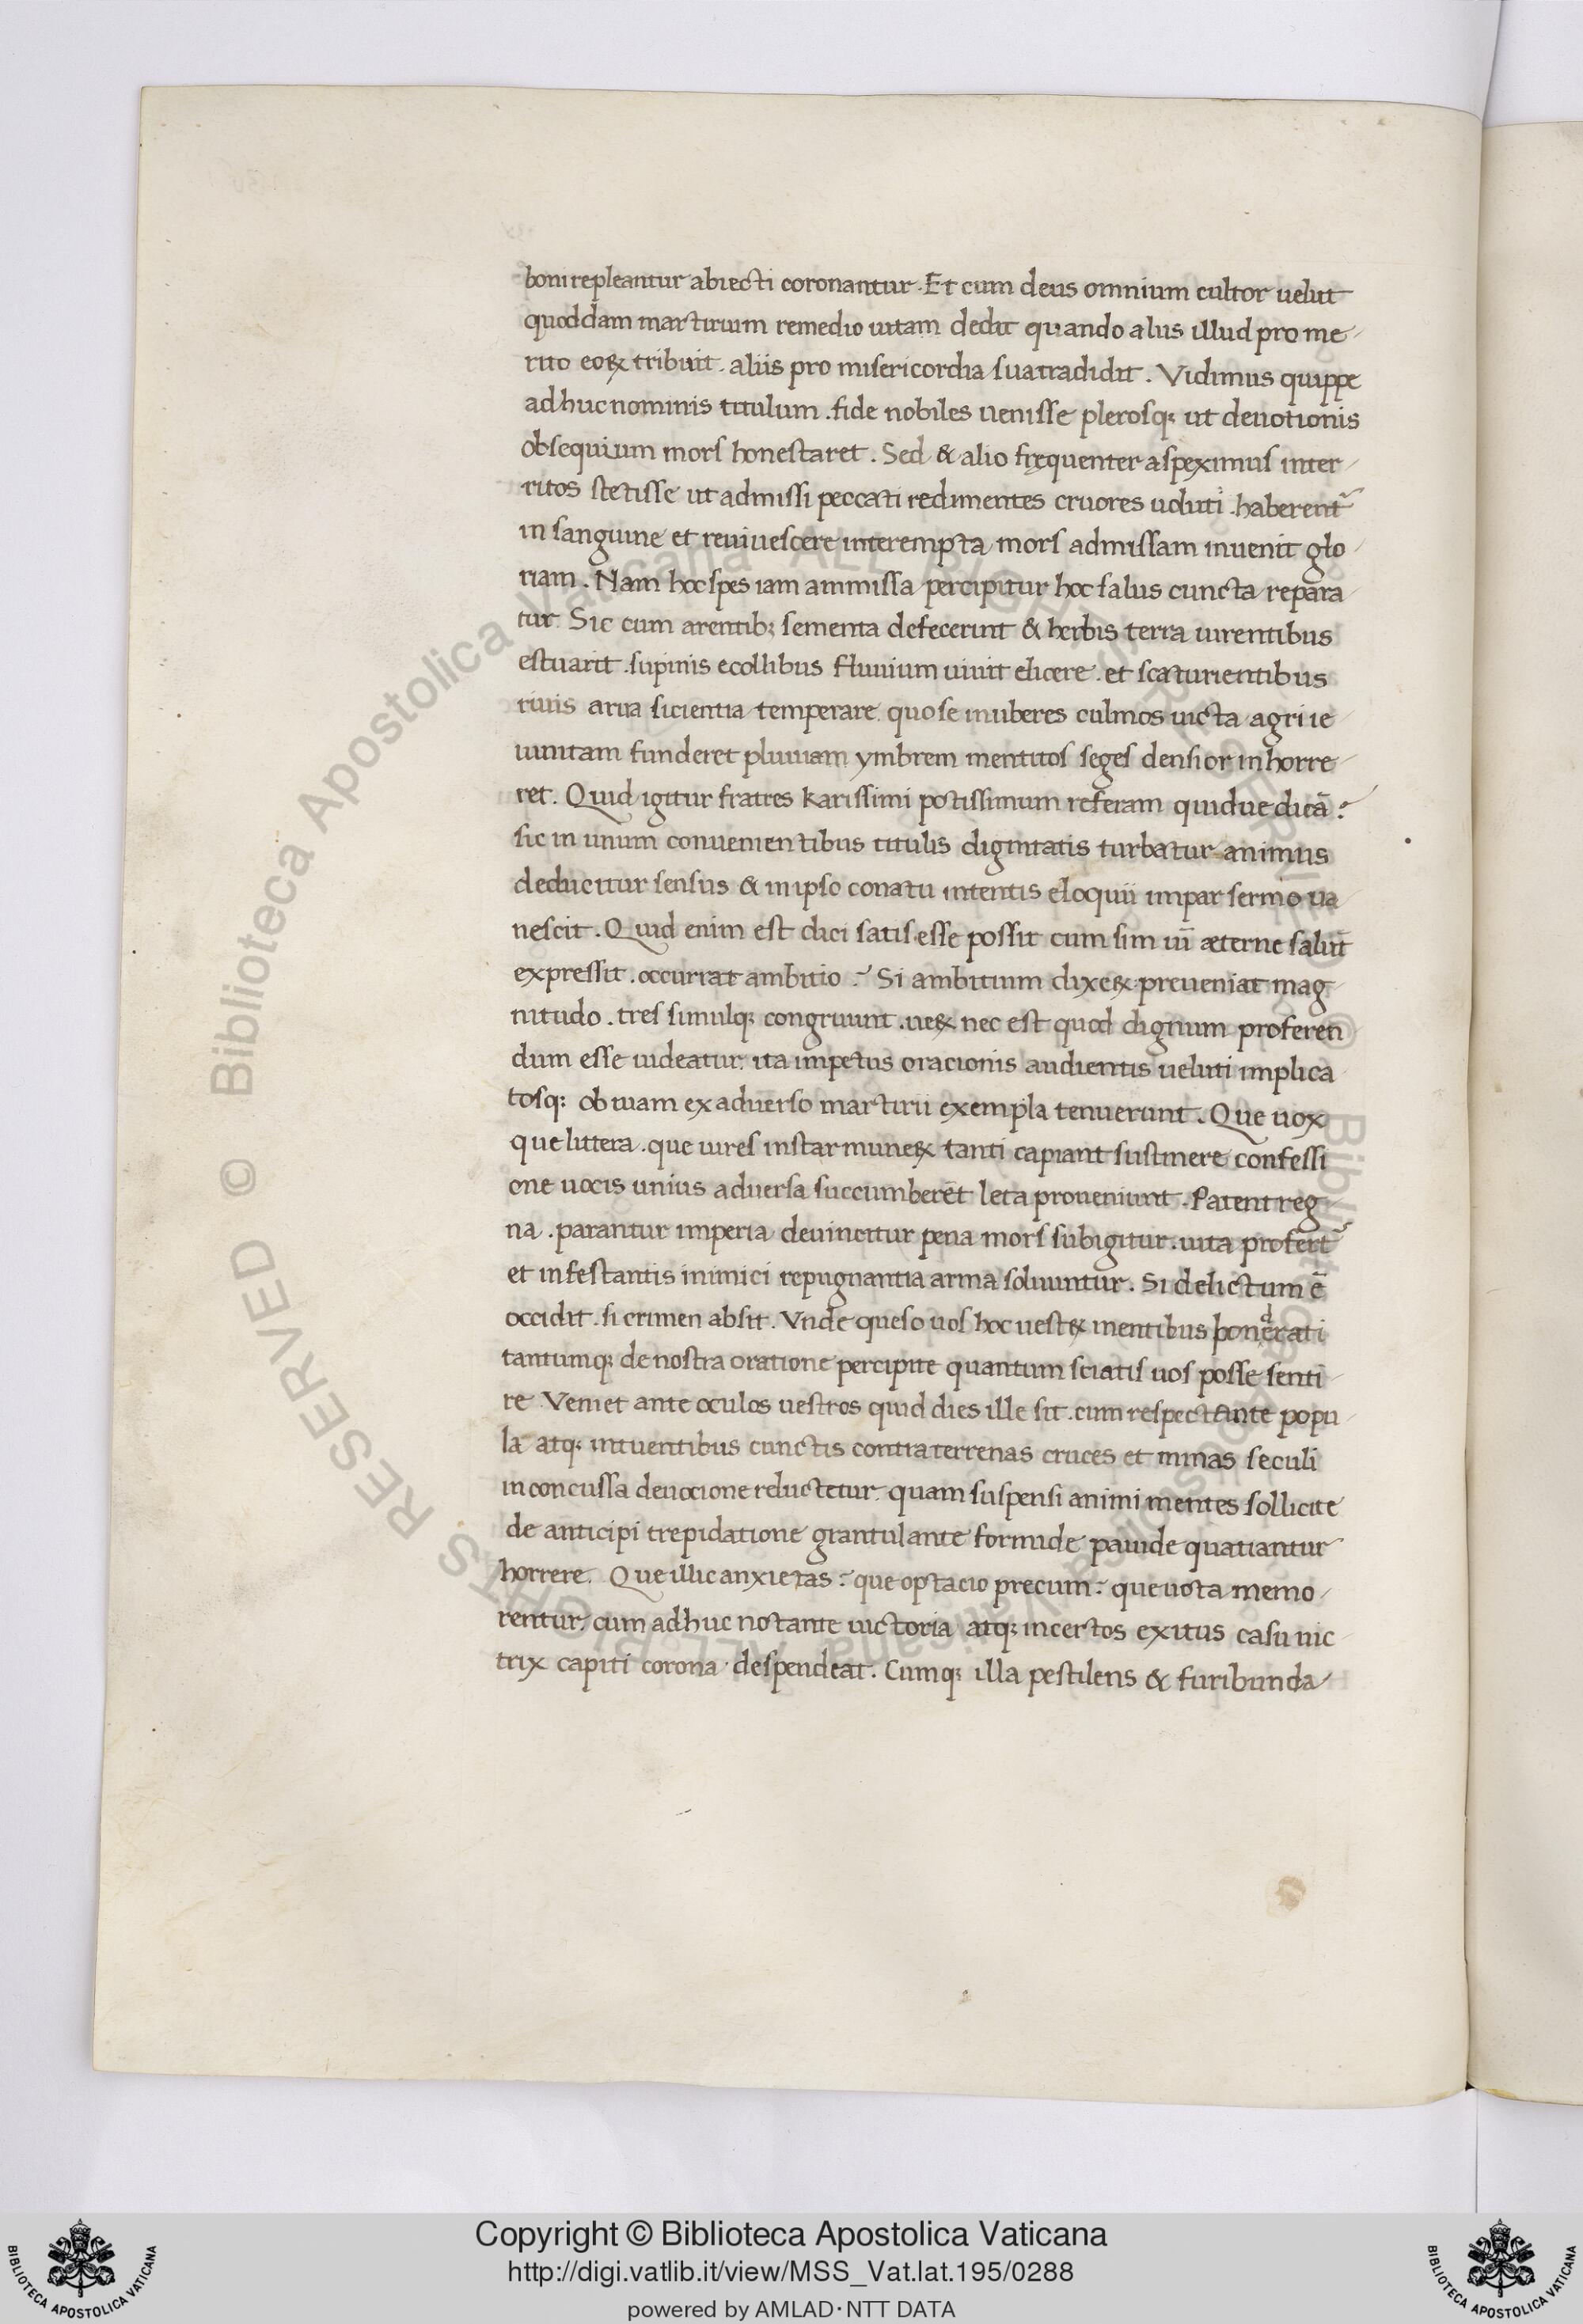 boni repleantur abiecti coronantur. Et cum deus omnium cultor uelut
quoddam martirium remedio uitam dedit quando alus illud pro me-
rito eoꝝ tribuit. aliis pro misericordia sua tradidit. Vidimus quippe
ad huc nominis titulum. fide nobiles uenisse plerosq; ut deuotionis
obsequium mors honestaret. Sed & alio frequenter aspeximus inter-
ritos stetisse ut admissi peccati redimentes cruores uoluti. haberent̃
in sanguine et reuiuescere interempta mors admissam inuenit glo-
riam. Nam hoc spes iam ammissa percipitur hoc salus cuncta repara
tur. Sic cum arentib; sementa defecerint & herbis terra uirentibus
estuarit. supinis e collibus fluuium uiuit elicere. et scaturientibus
riuis arua sicientia temperare. quo se in uberes culmos uicta agri ie-
iunitam funderet pluuiam ymbrem mentitos seges densior inhorre-
ret. Quid igitur fratres karissimi potissimum referam quidue dicā?
sic in unum conuenientibus titulis digintatis turbatur animus
deducitur sensus & in ipso conatu intentis eloquii impar sermo ua
nescit. Quid enim est dici satis esse possit cum sim uī æterne salut̄
expressit. occurrat ambitio? Si ambitium dixeꝝ preueniat mag-
nitudo. tres simulq; congruunt. ueꝝ nec est quod dignum proferen
dum esse uideatur. ita impetus oracionis audientis ueluti implica
tosq; ob uiam ex aduerso martirii exempla tenuerunt. Que uox
que littera. que uires instar muneꝝ tanti capiant sustinere confessi
one uocis unius aduersa succumberēt leta proueniunt. Patent reg-
na. parantur imperia deuincitur pena mors subigitur. uita profert̃
et infestantis inimici repugnantia arma soluuntur. Si delictum ē
occidit. si crimen absit. Vnde queso uos hoc uestꝝ mentibus ponderati
tantumq; de nostra oratione percipite quantum sciatis uos posse senti-
re. Veniet ante oculos uestros quid dies ille sit. cum respectante popu-
la atq; intuentibus cunctis contra terrenas cruces et minas seculi
inconcussa deuocione reluctetur. quam suspensi animi mentes sollicite
de anticipi trepidatione grantulante formide pauide quatiantur
horrere. Que illic anxietas? que optacio precum? que uota memo-
rentur. cum ad huc notante uictoria atq; incertos exitus casu uic-
trix capiti corona despendeat. Cumq; illa pestilens & furibunda
© Biblioteca Apostolica Vaticana ALL RIGHTS RESERVED © Biblioteca Apostolica Vaticana ALL RIGHTS RESERVED
Copyright © Biblioteca Apostolica Vaticana
http://digi.vatlib.it/view/MSS_Vat.lat.195/0288
powered by AMLAD·NTT DATA
BIBLIOTECA APOSTOLICA VATICANA
BIBLIOTECA APOSTOLICA VATICANA